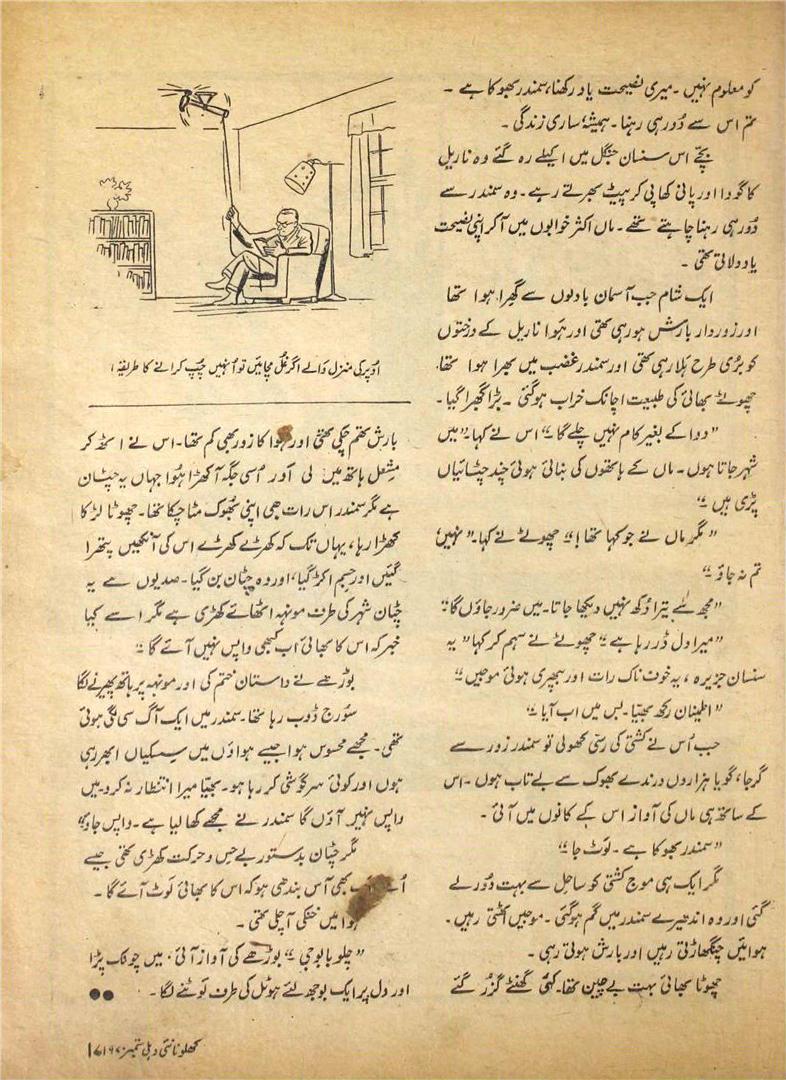 کو معلوم نہیں ۔ میری نصیحت یاد رکھنا، سمندر بھوکا ہے ۔
تم اس سے دُور ہی رہنا ۔ ہمیشہ ساری زندگی ۔
بچّے اس سنسان جنگل میں اکیلے رہ گئے وہ ناریل
کا گودا اور پانی کھا پی کر پیٹ بھرتے رہے ۔ وہ سمندر سے
دُور ہی رہنا چاہتے تھے ۔ ماں اکثر خوابوں میں آکر اپنی نصیحت
یاد دلاتی تھی ۔
ایک شام جب آسمان بادلوں سے گھرا ہوا تھا
اور زوردار بارش ہو رہی تھی اور ہَوا ناریل کے درختوں
کو بُری طرح ہلا رہی تھی اور سمندر غضب میں بھرا ہوا تھا۔
چھوٹے بھائی کی طبیعت اچانک خراب ہوگئی ۔ بڑا گھبرا گیا ۔
”دوا کے بغیر کام نہیں چلے گا“ اس نے کہا ۔ ”میں
شہر جاتا ہوں ۔ ماں کے ہاتھوں کی بنائی ہوئی چند چٹائیاں
پڑی ہیں“
”مگر ماں نے جو کہا تھا!“ چھوٹے نے کہا ۔ ”نہیں
تم نہ جاؤ“
”مجھ سے تیرا دُکھ نہیں دیکھا جاتا ۔ میں ضرور جاؤں گا“
”میرا دل ڈر رہا ہے“ چھوٹے نے سہم کر کہا ”یہ
سنسان جزیرہ ، یہ خوف ناک رات اور بپھری ہوئی موجیں“
”اطینان رکھ بھیّا ۔ بس میں اب آیا“
جب اُس نے کشتی کی رسّی کھولی تو سمندر زور سے
گرجا، گویا ہزاروں درندے بھوک سے بے تاب ہوں ۔ اس
کے ساتھ ہی ماں کی آواز اس کے کانوں میں آئی ۔
”سمندر بھوکا ہے ۔ لوٹ جا“
مگر ایک ہی موج کشتی کو ساحل سے بہت دُور لے
گئی اور وہ اندھیرے سمندر میں گم ہوگئی ۔ موجیں اٹھتی رہیں ۔
ہوائیں چنگھاڑتی رہیں اور بارش ہوتی رہی ۔
چھوٹا بھائی بہت بے چین تھا ۔ کئی گھنٹے گزر گئے
اُوپر کی منزل والے اگر غُل مچائیں تو اُنہیں چُپ کرانے کا طریقہ!
بارش تھم چکی تھی اور ہوا کا زور بھی کم تھا ۔ اس نے اٹھ کر
مشعل ہاتھ میں لی اور اُسی جگہ آ کھڑا ہُوا جہاں یہ چٹان
ہے مگر سمندر اس رات بھی اپنی بھوک مٹا چکا تھا ۔ چھوٹا لڑکا
کھڑا رہا، یہاں تک کہ کھڑے کھڑے اس کی آنکھیں پتھرا
گئیں اور جسم اکڑ گیا، اور وہ چٹان بن گیا ۔ صدیوں سے یہ
چٹان شہر کی طرف مونہہ اٹھائے کھڑی ہے مگر اسے کیا
خبر کہ اس کا بھائی اب کبھی واپس نہیں آئے گا“
بوڑھے نے داستان ختم کی اور مونہہ پر ہاتھ پھیرنے لگا
سُورج ڈوب رہا تھا ۔ سمندر میں ایک آگ سی لگی ہوئی
تھی ۔ مجھے محسوس ہوا جیسے ہواؤں میں سسکیاں ابھر رہی
ہوں اور کوئی سرگوشی کر رہا ہو ۔ بھیّا میرا انتظار نہ کرو میں
واپس نہیں آؤں گا سمندر نے مجھے کھا لیا ہے ۔ واپس جاؤ“
مگر چٹان بدستور بے حِس و حرکت کھڑی تھی جیسے
اُسے اب بھی آس بندھی ہو کہ اس کا بھائی لَوٹ آئے گا ۔
ہوا میں خنکی آ چلی تھی ۔
”چلو بابو جی“ بوڑھے کی آواز آئی، میں چونک پڑا
اور دل پر ایک بوجھ لئے ہوٹل کی طرف لَوٹنے لگا ۔ ●●
کھلونا نئی دہلی ستمبر ۱۹۷۰ء ۱۷